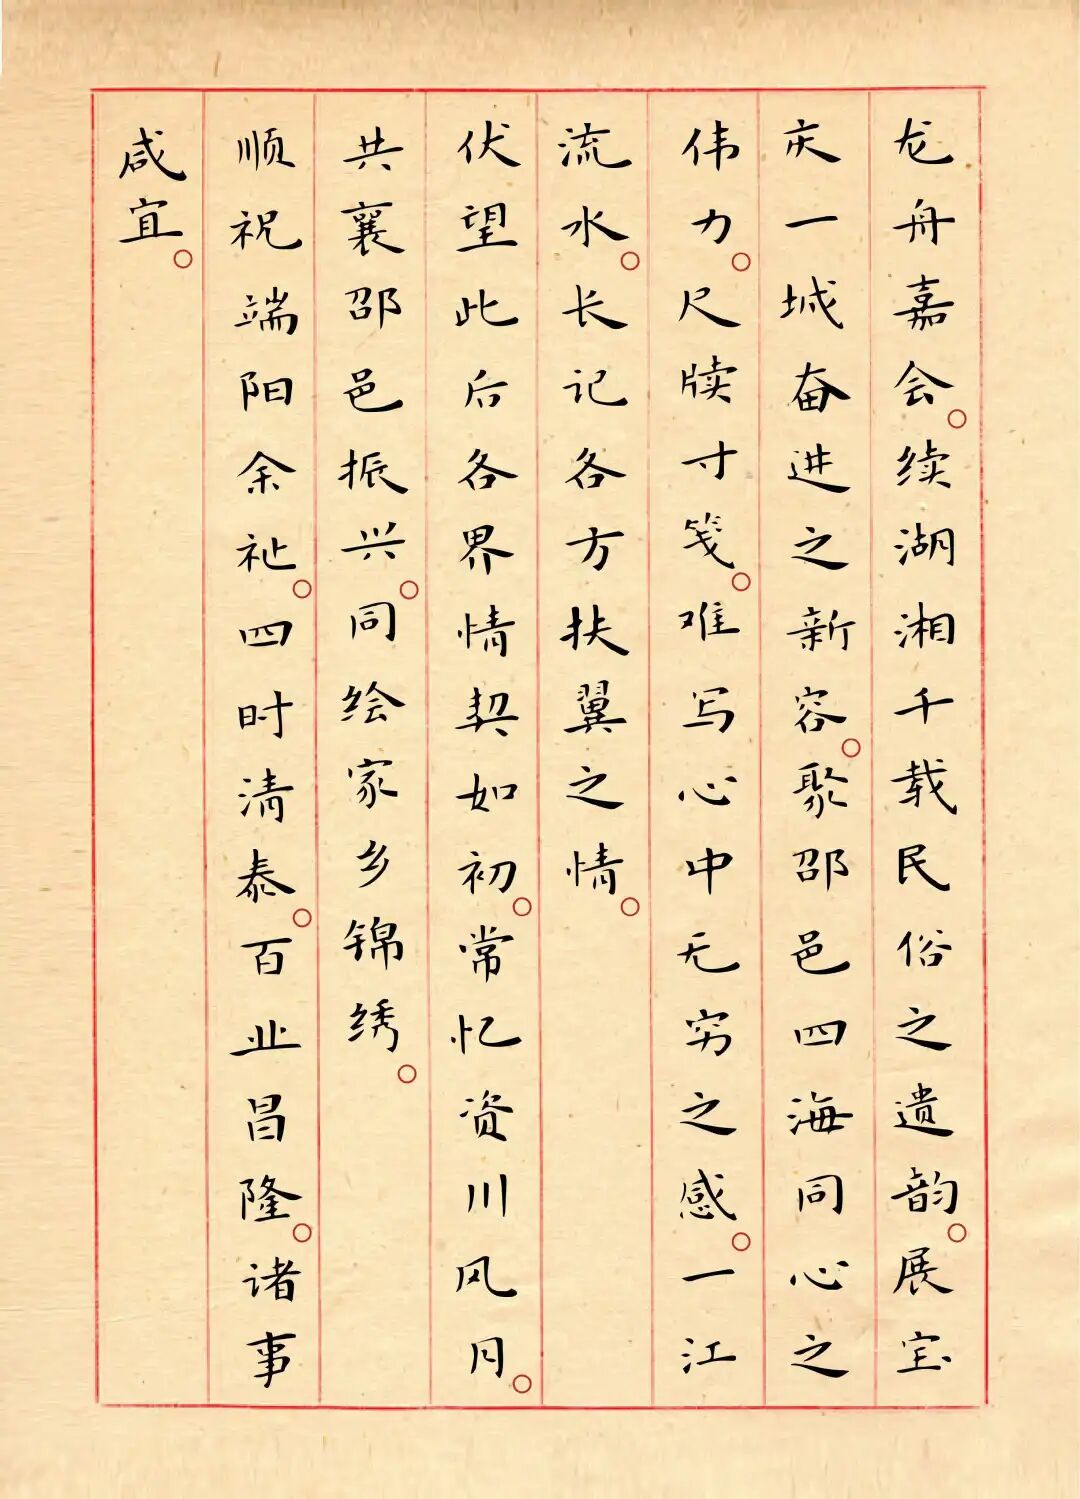 龙舟嘉会。续湖湘千载民俗之遗韵。展宝
庆一城奋进之新容。聚邵邑四海同心之
伟力。尺牍寸笺。难写心中无穷之感。一江
流水。长记各方扶翼之情。
伏望此后各界情契如初。常忆资川风月。
共襄邵邑振兴。同绘家乡锦绣。
顺祝端阳余祉。四时清泰。百业昌隆。诸事
咸宜。